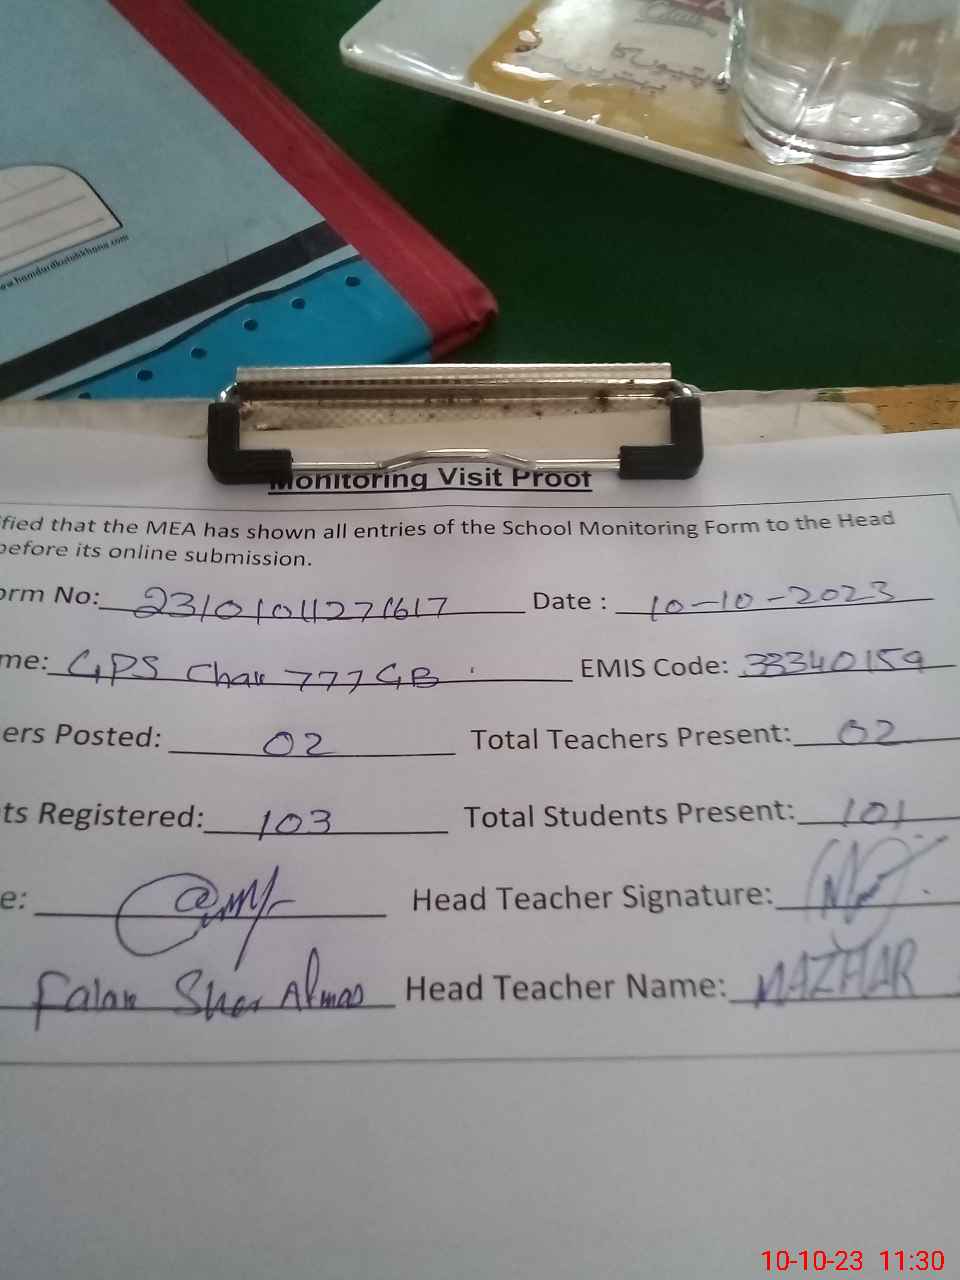 پتیوں کا
بہترین
www.hamdardkutubkhana.com
Monitoring Visit Proof
fied that the MEA has shown all entries of the School Monitoring Form to the Head
before its online submission.
orm No: 23101011271617 Date : 10-10-2023
me: GPS Chak 777 GB EMIS Code: 33340159
ers Posted: 02 Total Teachers Present: 02
ts Registered: 103 Total Students Present: 101
e: Head Teacher Signature:
Falak Sher Almas Head Teacher Name: MAZHAR
10-10-23 11:30